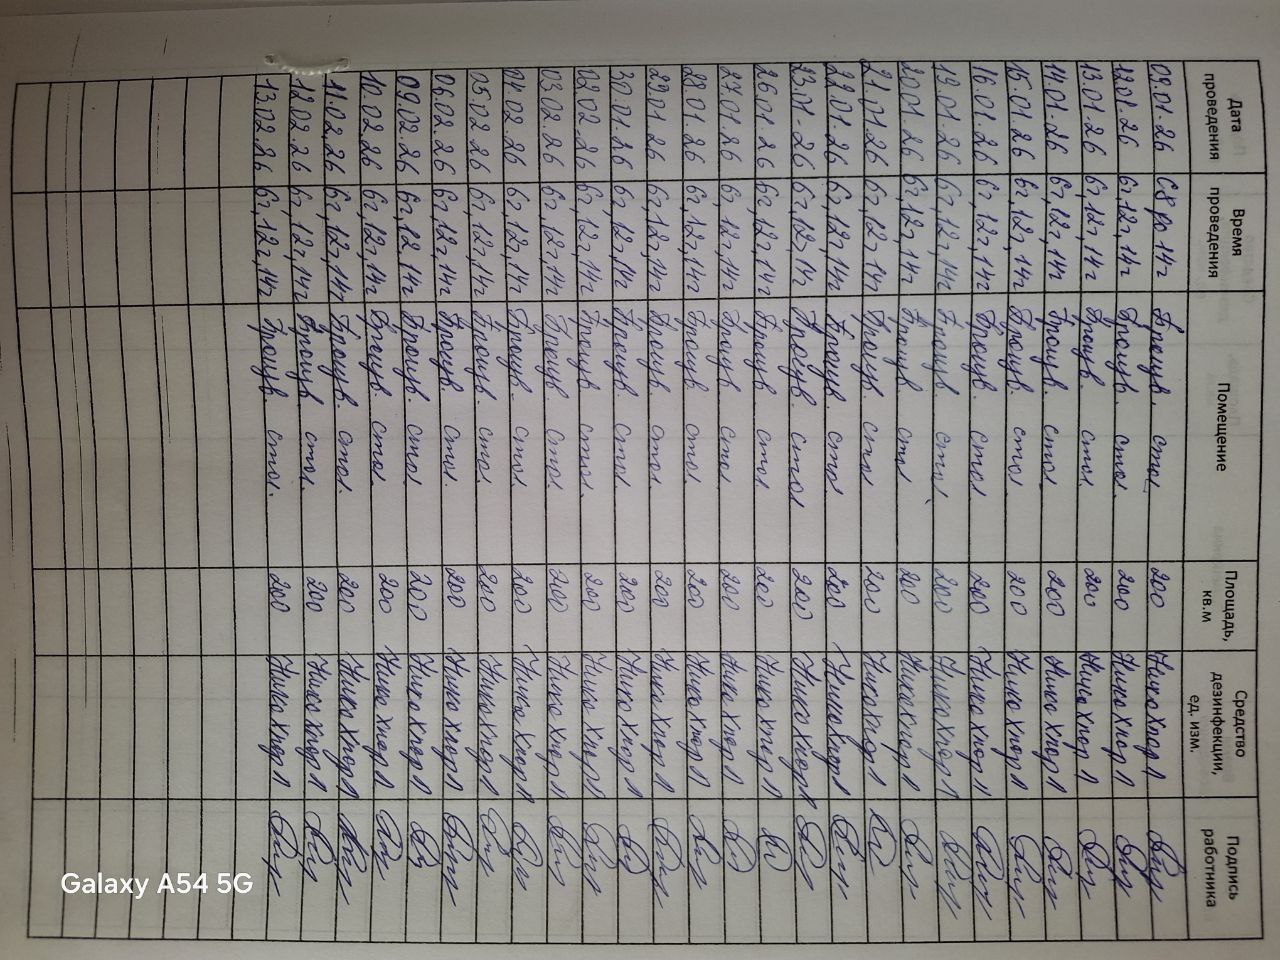 Дата проведения | Время проведения | Помещение | Площадь, кв.м | Средство дезинфекции, ед. изм. | Подпись работника
09.01.26 | с 8 до 14ч | Произв. стол | 200 | Ника Хлор 1
12.01.26 | 6ч, 12ч, 14ч | Произв. стол. | 200 | Ника Хлор 1
13.01.26 | 6ч, 12ч, 14ч | Произв. стол | 200 | Ника Хлор 1
14.01.26 | 6ч, 12ч, 14ч | Произв. стол | 200 | Ника Хлор 1
15.01.26 | 6ч, 12ч, 14ч | Произв. стол | 200 | Ника Хлор 1
16.01.26 | 6ч, 12ч, 14ч | Произв. стол | 200 | Ника Хлор 1
19.01.26 | 6ч, 12ч, 14ч | Произв. стол | 200 | Ника Хлор 1
20.01.26 | 6ч, 12ч, 14ч | Произв. стол | 200 | Ника Хлор 1
21.01.26 | 6ч, 12ч 14ч | Произв. стол | 200 | Ника Хлор 1
22.01.26 | 6ч, 12ч 14ч | Произв. стол | 200 | Ника Хлор 1
23.01-26 | 6ч, 12ч, 14ч | Произв стол | 200 | Ника Хлор 1
26.01.26 | 6ч, 12ч, 14ч | Произв стол | 200 | Ника Хлор 1
27.01.26 | 6ч, 12ч, 14ч | Произв. стол | 200 | Ника Хлор 1
28.01.26 | 6ч, 12ч, 14ч | Произв. стол | 200 | Ника Хлор 1
29.01.26 | 6ч, 12ч, 14ч | Произв. стол. | 200 | Ника Хлор 1
30.01.26 | 6ч, 12ч, 14ч | Произв. стол | 200 | Ника Хлор 1
02.02.26 | 6ч, 12ч, 14ч | Произв стол. | 200 | Ника Хлор 1
03.02.26 | 6ч, 12ч 14ч | Произв. стол | 200 | Ника Хлор 1
04.02.26 | 6ч, 12ч, 14ч | Произв. стол | 200 | Ника Хлор 1
05.02.26 | 6ч, 12ч, 14ч | Произв. стол. | 200 | Ника Хлор 1
06.02.26 | 6ч, 12ч, 14ч | Произв. стол. | 200 | Ника Хлор 1
09.02.26 | 6ч, 12, 14ч | Произв. стол | 200 | Ника Хлор 1
10.02.26 | 6ч, 12ч, 14ч | Произв. стол. | 200 | Ника Хлор 1
11.02.26 | 6ч, 12ч, 14ч | Произв. стол. | 200 | Ника Хлор 1
12.02.26 | 6ч, 12ч, 14ч | Произв. стол. | 200 | Ника Хлор 1
13.02.26 | 6ч, 12ч, 14ч | Произв. стол. | 200 | Ника Хлор 1
Galaxy A54 5G